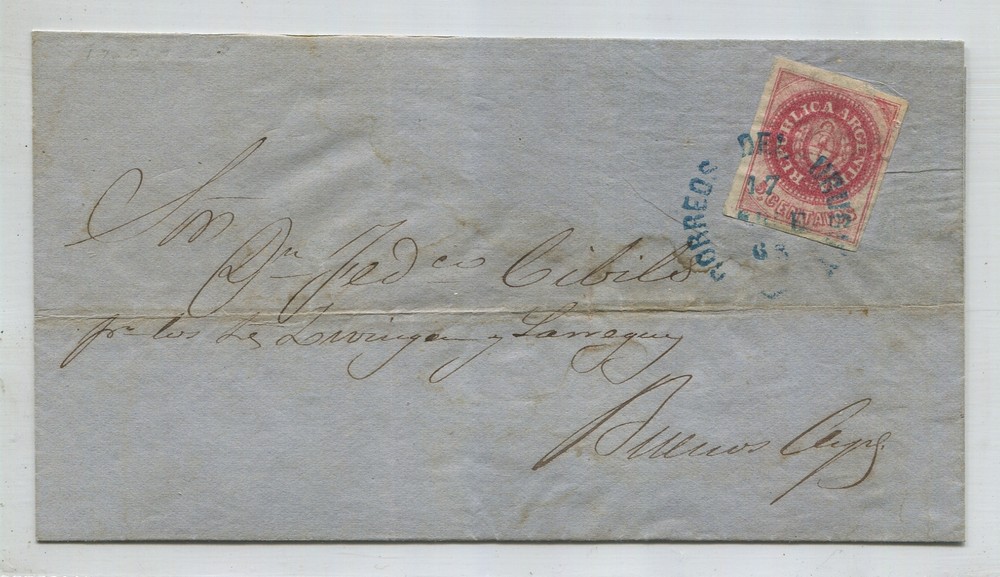 REPUBLICA ARGENTI
CENTAVOS
CORREOS DEL URUGUAY
17
63
Sor
Dn Fedco Cibils
pr los Ss y Larreguy
Buenos Ayrs